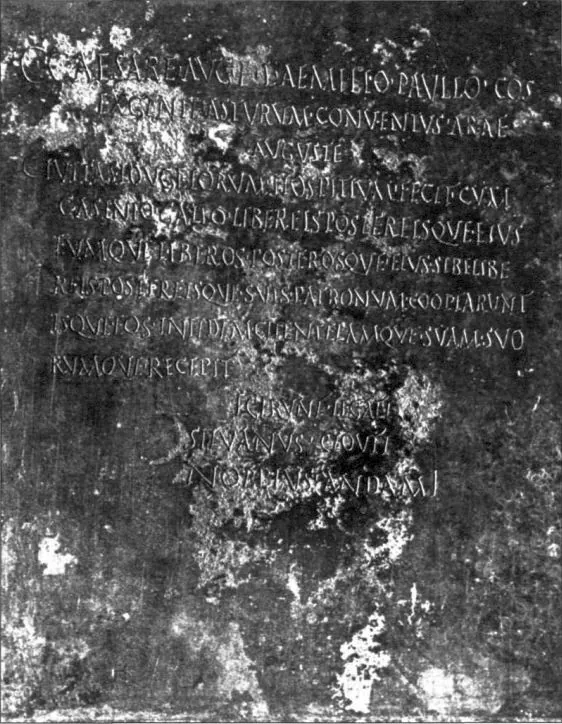 C·CAESARE·AVG·F·L·AEMILIO·PAVLLO·COS
EX·GENTE·ASTVRVM·CONVENTVS·ARAE
AVGVSTE
CIVITAS·LOVGEIORVM·HOSPITIVM·FECIT·CVM
C·ASINIO·GALLO·LIBEREIS·POSTEREISQVE·EIVS
EVMQVE·LIBEROS·POSTEROSQVE·EIVS·SIBI·LIBE
REIS·POSTEREISQVE·SVIS·PATRONVM·COOPTARVNT
ISQVE·EOS·IN·FIDEM·CLIENTELAMQVE·SVAM·SVO
RVMQVE·RECEPIT
EGERVNT·LEGATI
SILVANVS·CLOVTI
NOPPIVS·ANDAMI